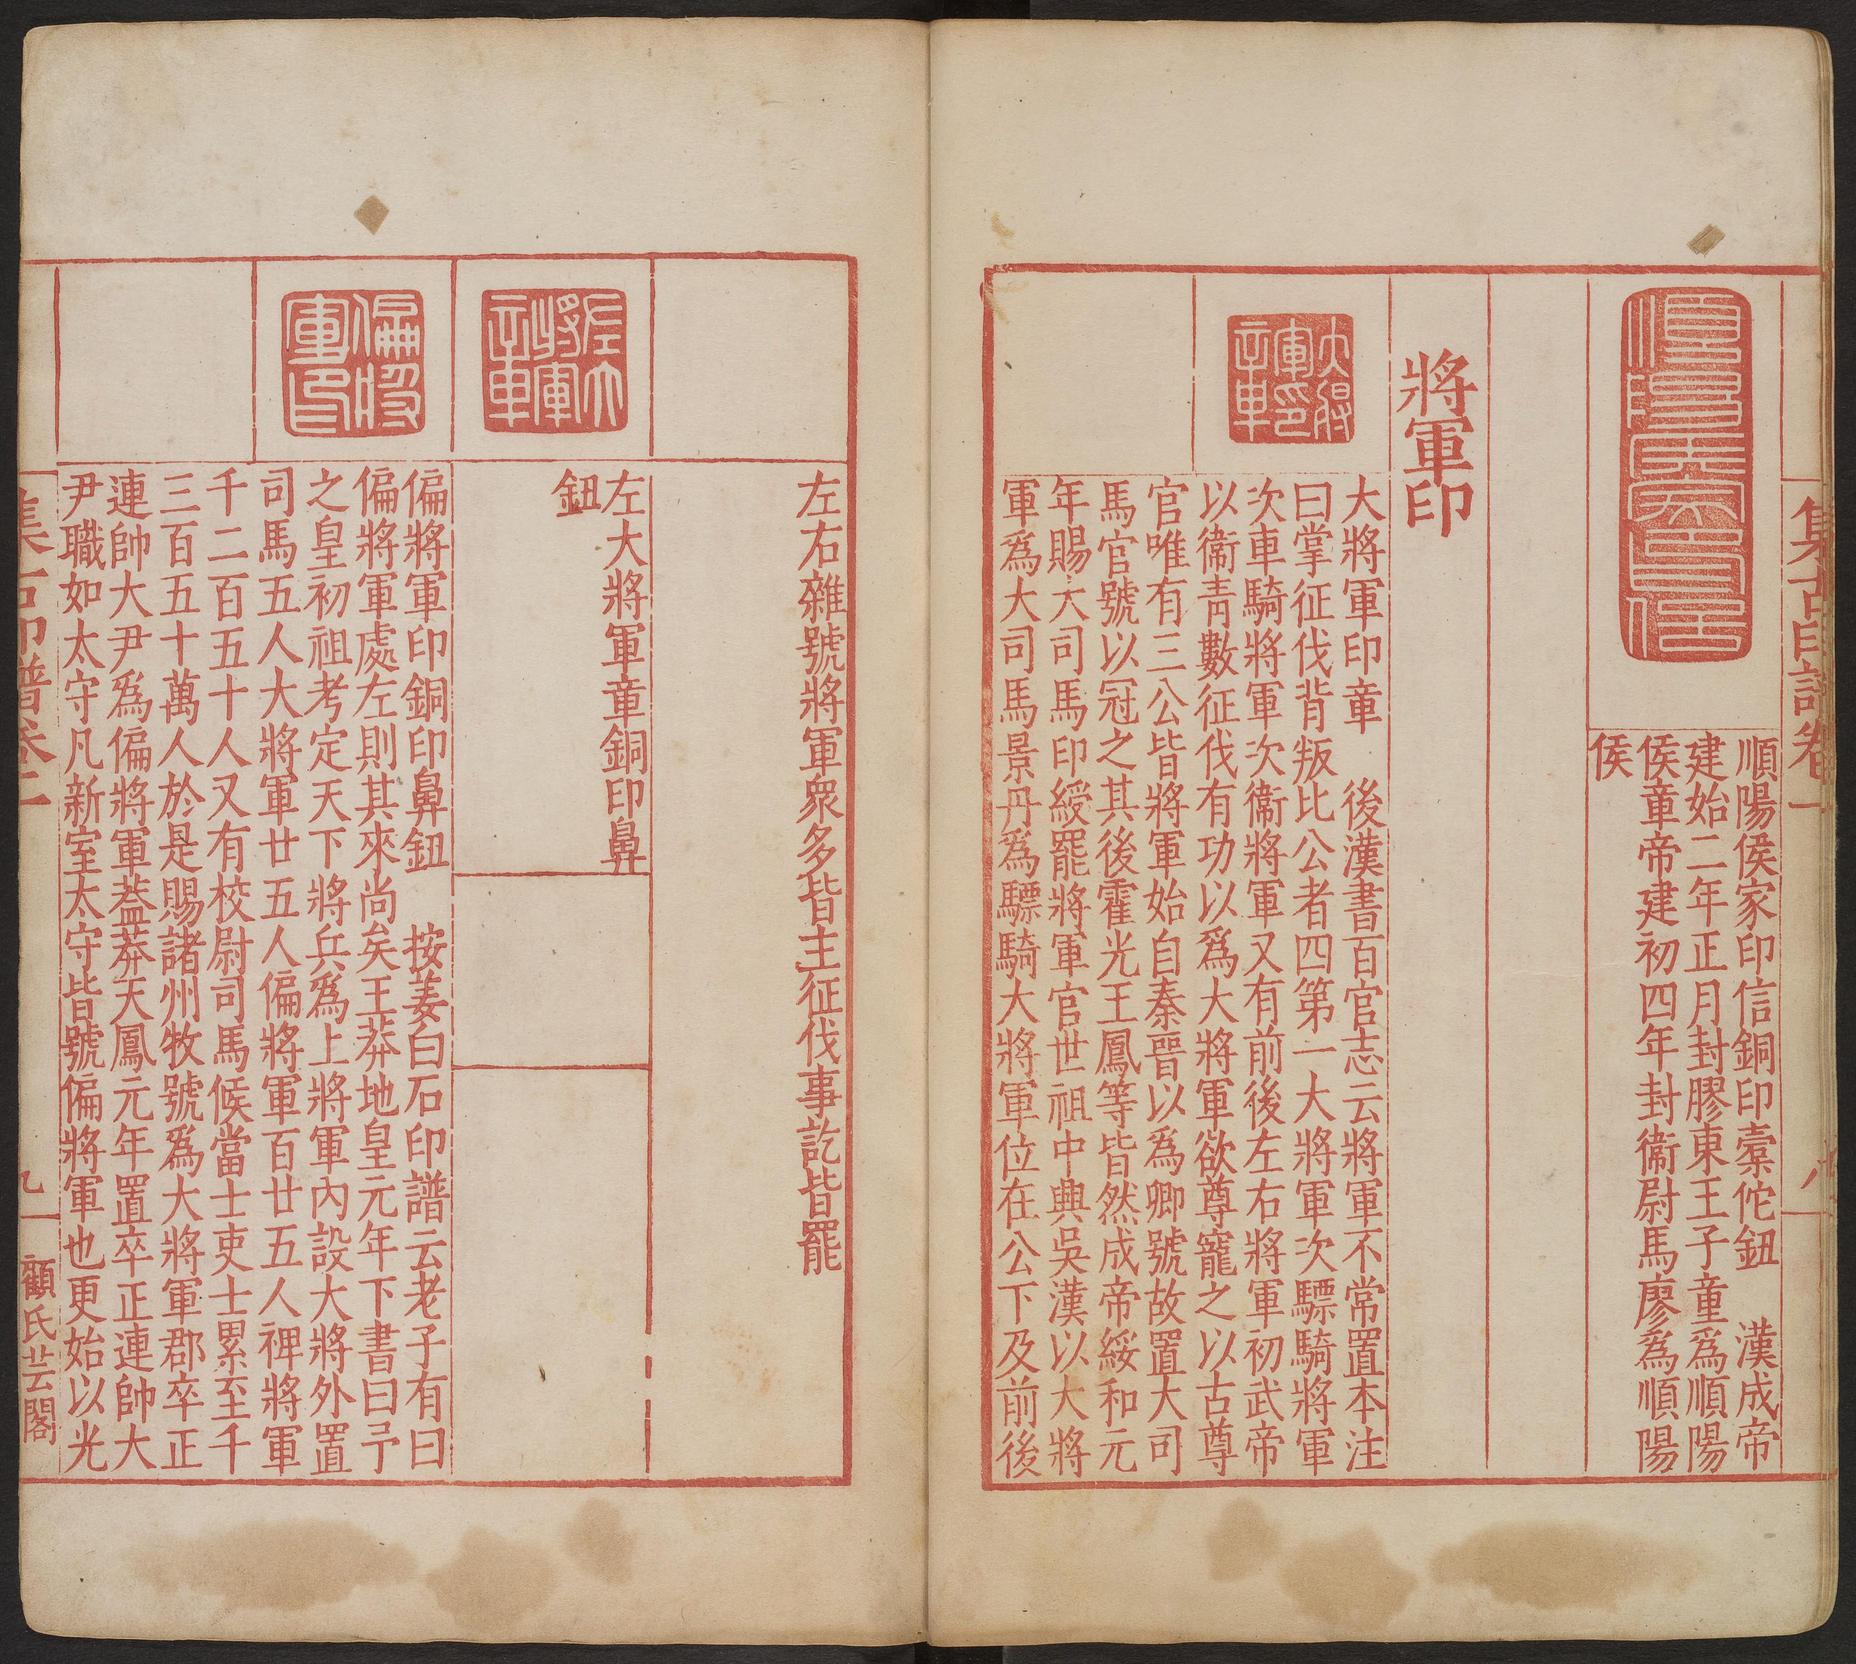 集古印譜卷一
八
順陽侯家印信銅印橐佗鈕　漢成帝
建始二年正月封膠東王子童爲順陽
侯章帝建初四年封衞尉馬廖爲順陽
侯
將軍印
大將軍印章
大將軍印章　後漢書百官志云將軍不常置本注
曰掌征伐背叛比公者四第一大將軍次驃騎將軍
次車騎將軍次衞將軍又有前後左右將軍初武帝
以衞青數征伐有功以爲大將軍欲尊寵之以古尊
官唯有三公皆將軍始自秦晉以爲卿號故置大司
馬官號以冠之其後霍光王鳳等皆然成帝綏和元
年賜大司馬印綬罷將軍官世祖中興吳漢以大將
軍爲大司馬景丹爲驃騎大將軍位在公下及前後
左右雜號將軍衆多皆主征伐事訖皆罷
左大將軍章
左大將軍章銅印鼻
鈕
偏將軍印
偏將軍印銅印鼻鈕　按姜白石印譜云老子有曰
偏將軍處左則其來尚矣王莽地皇元年下書曰予
之皇初祖考定天下將兵爲上將軍內設大將外置
司馬五人大將軍廿五人偏將軍百廿五人裨將軍
千二百五十人又有校尉司馬候當士吏士累至千
三百五十萬人於是賜諸州牧號爲大將軍郡卒正
連帥大尹爲偏將軍葢莽天鳳元年置卒正連帥大
尹職如太守凡新室太守皆號偏將軍也更始以光
集古印譜卷一
九
顧氏芸閣